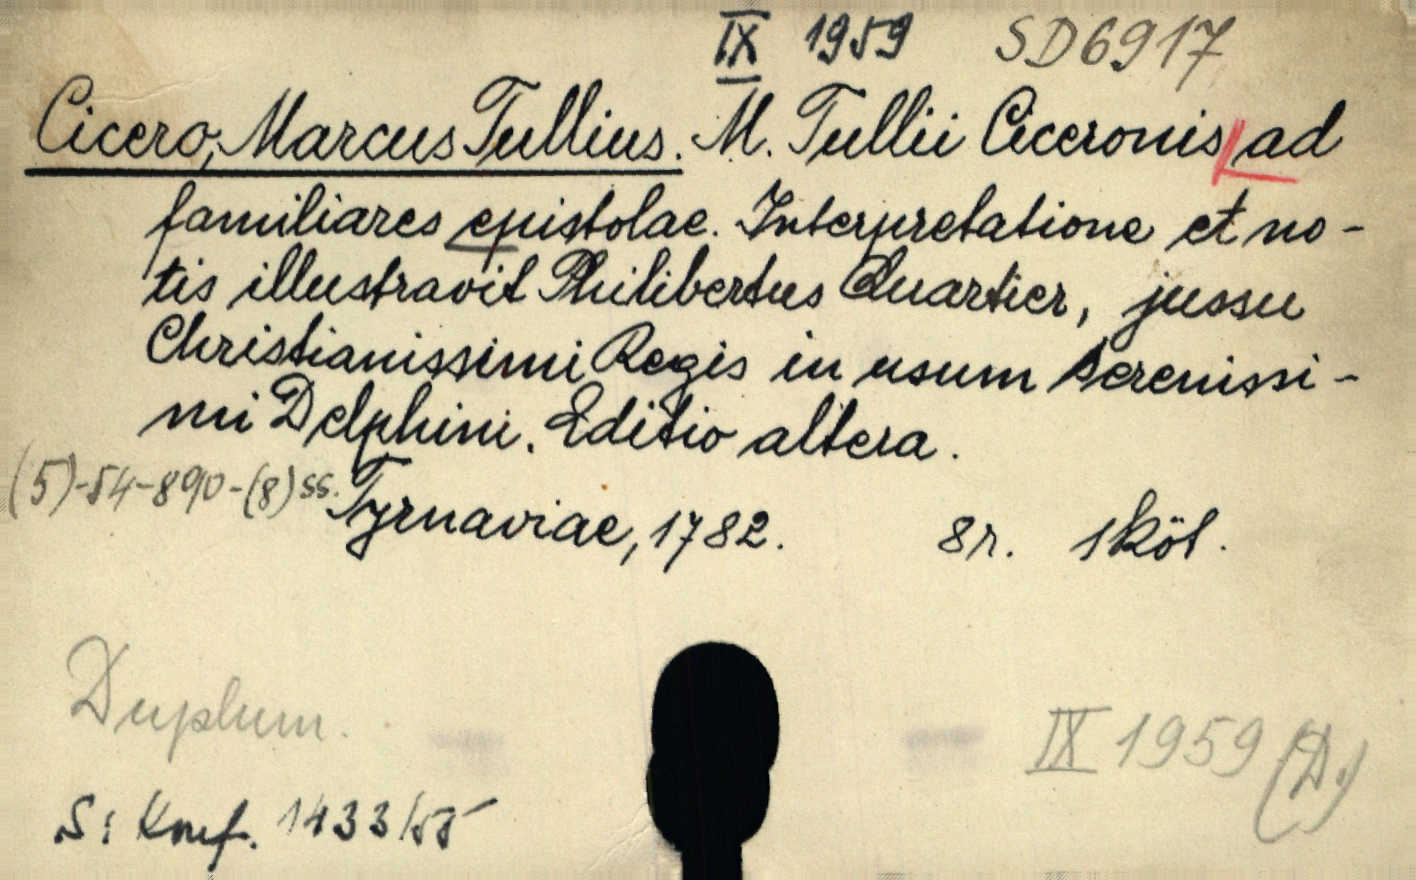 IX 1959 SD6917
Cicero, Marcus Tullius. M. Tullii Ciceronis ad
familiares epistolae. Interpretatione et no-
tis illustravit Philibertus Quartier, jussu
Christianissimi Regis in usum serenissi-
mi Delphini. Editio altera.
(5)-54-890-(8) ss.
Tyrnaviae, 1782. 8r. 1 köt.
Duplum.
IX 1959 (D.)
S: Konf. 1433/55